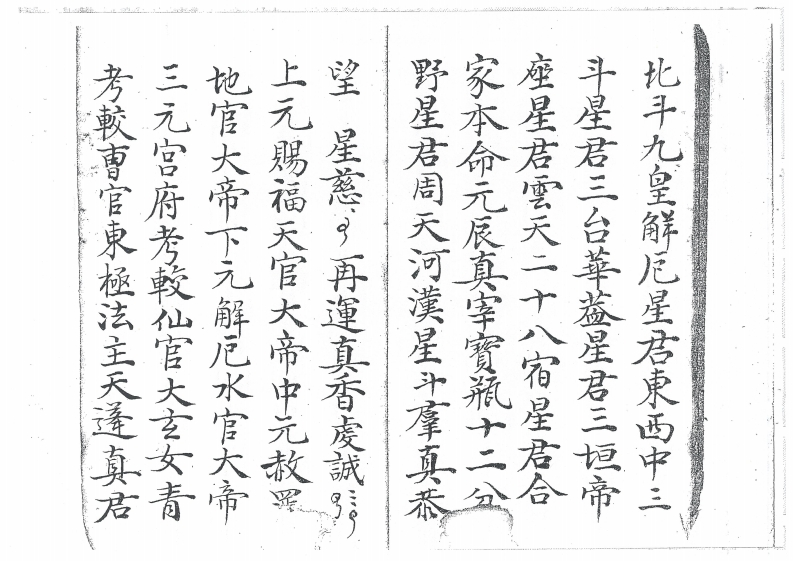 北斗九皇解厄星君東西中三
斗星君三台華蓋星君三垣帝
座星君雲天二十八宿星君合
家本命元辰真宰寶瓶十二分
野星君周天河漢星斗羣真恭
望　星慈
再運真香虔誠
上元賜福天官大帝中元赦罪
地官大帝下元解厄水官大帝
三元宮府考較仙官大玄女青
考較曹官東極法主天蓬真君